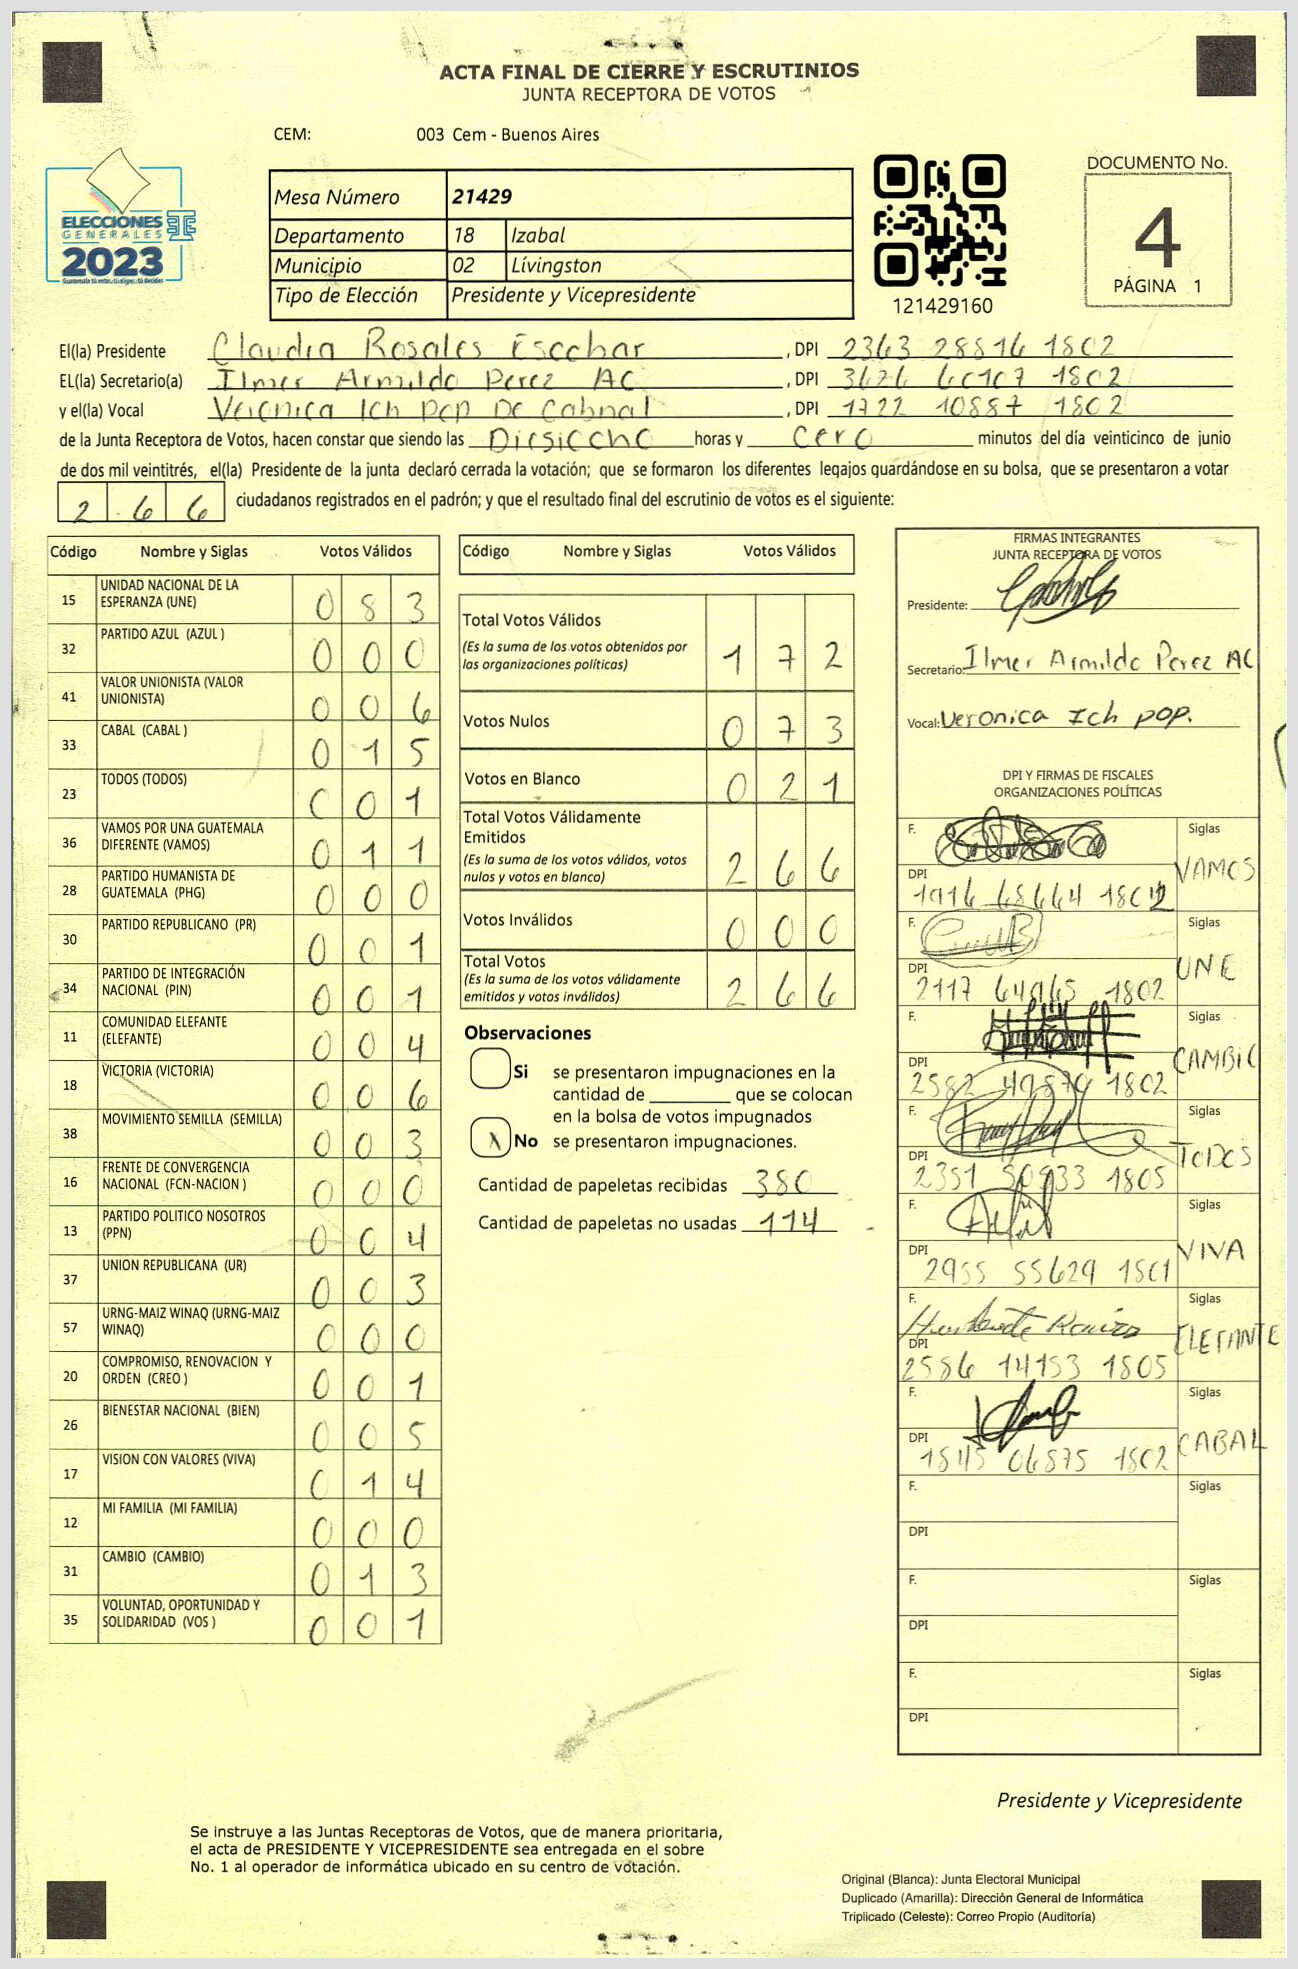 ACTA FINAL DE CIERRE Y ESCRUTINIOS
JUNTA RECEPTORA DE VOTOS
CEM: 003 Cem - Buenos Aires
ELECCIONES
GENERALES
2023
Mesa Número 21429
Departamento 18 Izabal
Municipio 02 Lívingston
Tipo de Elección Presidente y Vicepresidente
121429160
DOCUMENTO No.
4
PÁGINA 1
El(la) Presidente Claudia Rosales Escobar, DPI 2363 28816 1802
EL(la) Secretario(a) Ilmer Armildo Perez AC, DPI 3676 60107 1802
y el(la) Vocal Veronica Ich pop De Cabnal, DPI 1722 10887 1802
de la Junta Receptora de Votos, hacen constar que siendo las Diesiocho horas y cero minutos del día veinticinco de junio
de dos mil veintitrés, el(la) Presidente de la junta declaró cerrada la votación; que se formaron los diferentes legajos quardándose en su bolsa, que se presentaron a votar
266 ciudadanos registrados en el padrón; y que el resultado final del escrutinio de votos es el siguiente:
Código Nombre y Siglas Votos Válidos
15 UNIDAD NACIONAL DE LA ESPERANZA (UNE) 083
32 PARTIDO AZUL (AZUL ) 000
41 VALOR UNIONISTA (VALOR UNIONISTA) 006
33 CABAL (CABAL ) 015
23 TODOS (TODOS) 001
36 VAMOS POR UNA GUATEMALA DIFERENTE (VAMOS) 011
28 PARTIDO HUMANISTA DE GUATEMALA (PHG) 000
30 PARTIDO REPUBLICANO (PR) 001
34 PARTIDO DE INTEGRACIÓN NACIONAL (PIN) 001
11 COMUNIDAD ELEFANTE (ELEFANTE) 004
18 VICTORIA (VICTORIA) 006
38 MOVIMIENTO SEMILLA (SEMILLA) 003
16 FRENTE DE CONVERGENCIA NACIONAL (FCN-NACION ) 000
13 PARTIDO POLITICO NOSOTROS (PPN) 004
37 UNION REPUBLICANA (UR) 003
57 URNG-MAIZ WINAQ (URNG-MAIZ WINAQ) 000
20 COMPROMISO, RENOVACION Y ORDEN (CREO ) 001
26 BIENESTAR NACIONAL (BIEN) 005
17 VISION CON VALORES (VIVA) 014
12 MI FAMILIA (MI FAMILIA) 000
31 CAMBIO (CAMBIO) 013
35 VOLUNTAD, OPORTUNIDAD Y SOLIDARIDAD (VOS ) 001
Código Nombre y Siglas Votos Válidos
Total Votos Válidos 172
(Es la suma de los votos obtenidos por
las organizaciones políticas)
Votos Nulos 073
Votos en Blanco 021
Total Votos Válidamente
Emitidos 266
(Es la suma de los votos válidos, votos
nulos y votos en blanco)
Votos Inválidos 000
Total Votos 266
(Es la suma de los votos válidamente
emitidos y votos inválidos)
Observaciones
Si se presentaron impugnaciones en la
cantidad de ________ que se colocan
en la bolsa de votos impugnados
X No se presentaron impugnaciones.
Cantidad de papeletas recibidas 380
Cantidad de papeletas no usadas 114
FIRMAS INTEGRANTES
JUNTA RECEPTORA DE VOTOS
Presidente:
Secretario: Ilmer Armildo Perez AC
Vocal: Veronica Ich pop.
DPI Y FIRMAS DE FISCALES
ORGANIZACIONES POLÍTICAS
F. Siglas VAMOS
DPI 1916 68664 1802
F. Siglas UNE
DPI 2117 64965 1802
F. Siglas CAMBIO
DPI 2582 49879 1802
F. Siglas TODOS
DPI 2351 50933 1805
F. Siglas VIVA
DPI 2955 55629 1801
F. Humberto Ramirez Siglas ELEFANTE
DPI 2586 14153 1805
F. Siglas CABAL
DPI 1845 06875 1802
F. Siglas
DPI
F. Siglas
DPI
F. Siglas
DPI
Presidente y Vicepresidente
Se instruye a las Juntas Receptoras de Votos, que de manera prioritaria,
el acta de PRESIDENTE Y VICEPRESIDENTE sea entregada en el sobre
No. 1 al operador de informática ubicado en su centro de votación.
Original (Blanca): Junta Electoral Municipal
Duplicado (Amarilla): Dirección General de Informática
Triplicado (Celeste): Correo Propio (Auditoría)